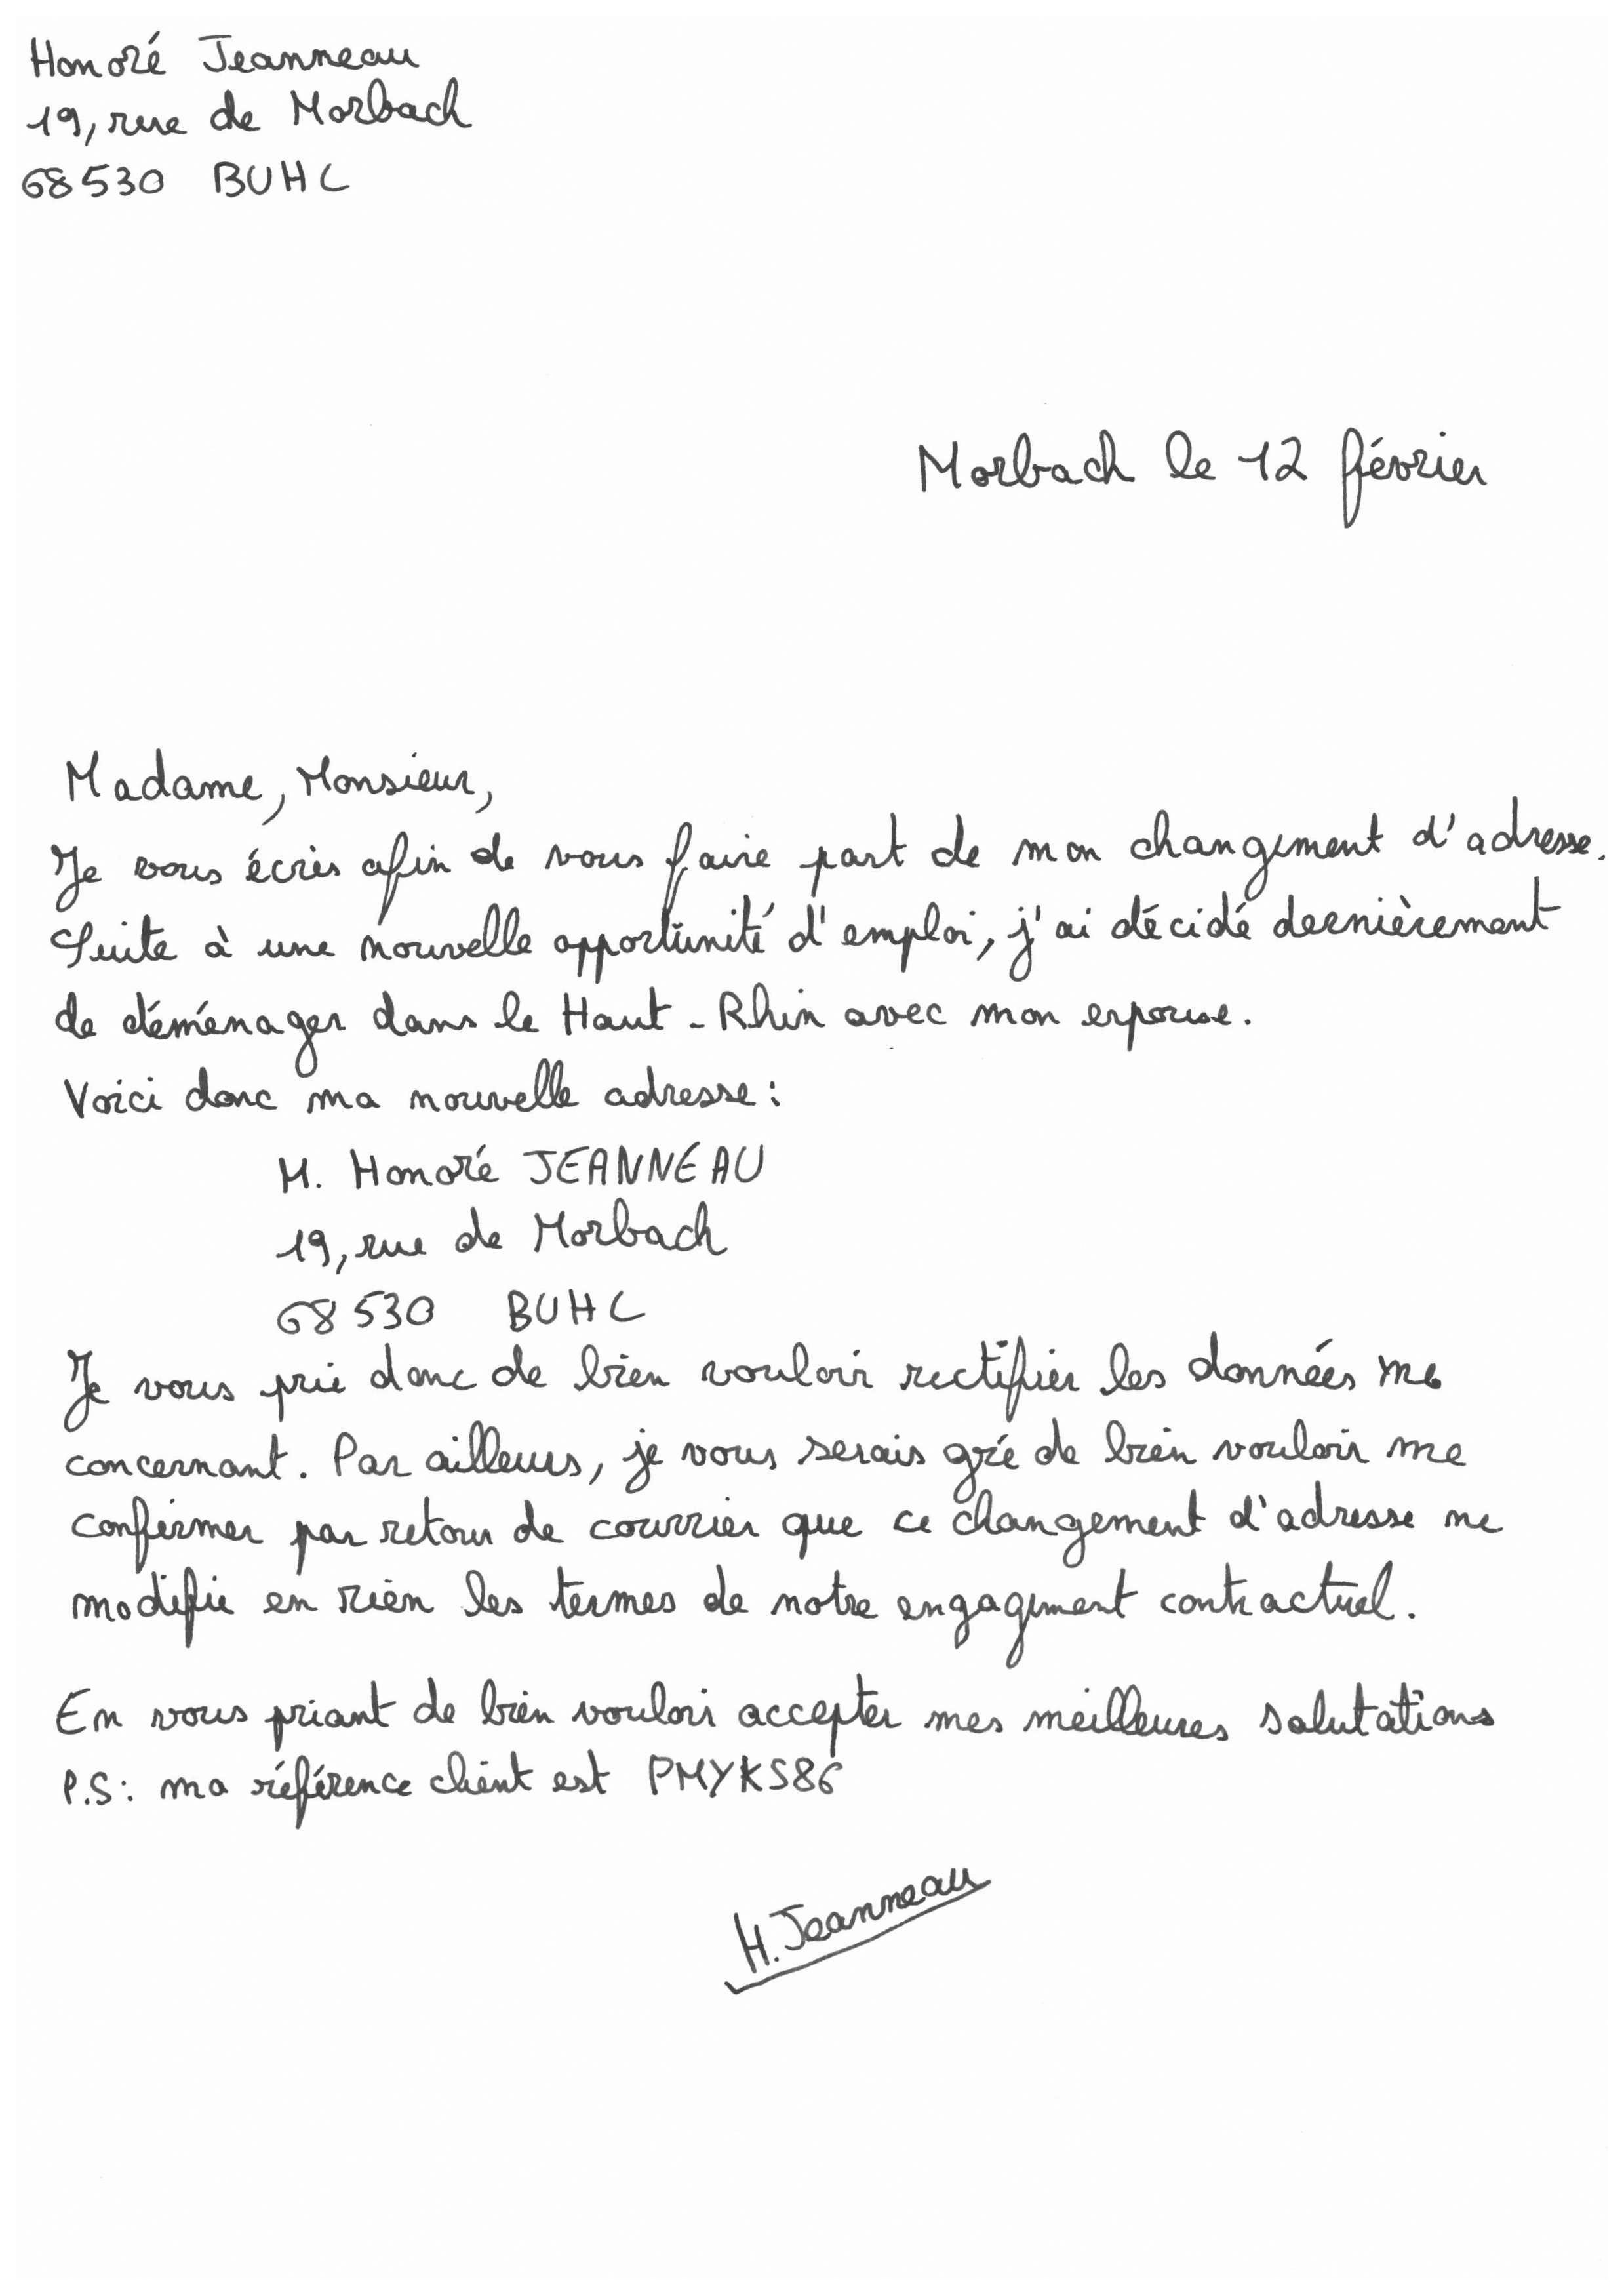 Honoré Jeanneau
19, rue de Morbach
68530 BUHL
Morbach le 12 février
Madame, Monsieur,
Je vous écris afin de vous faire part de mon changement d'adresse.
Suite à une nouvelle opportunité d'emploi, j'ai décidé dernièrement
de déménager dans le Haut-Rhin avec mon espouse.
Voici donc ma nouvelle adresse :
M. Honoré JEANNEAU
19, rue de Morbach
68530 BUHL
Je vous prie donc de bien vouloir rectifier les données me
concernant. Par ailleurs, je vous serais gré de bien vouloir me
confirmer par retour de courrier que ce changement d'adresse ne
modifie en rien les termes de notre engagement contractuel.
En vous priant de bien vouloir accepter mes meilleures salutations
P.S: ma référence client est PMYKS86
H. Jeanneau